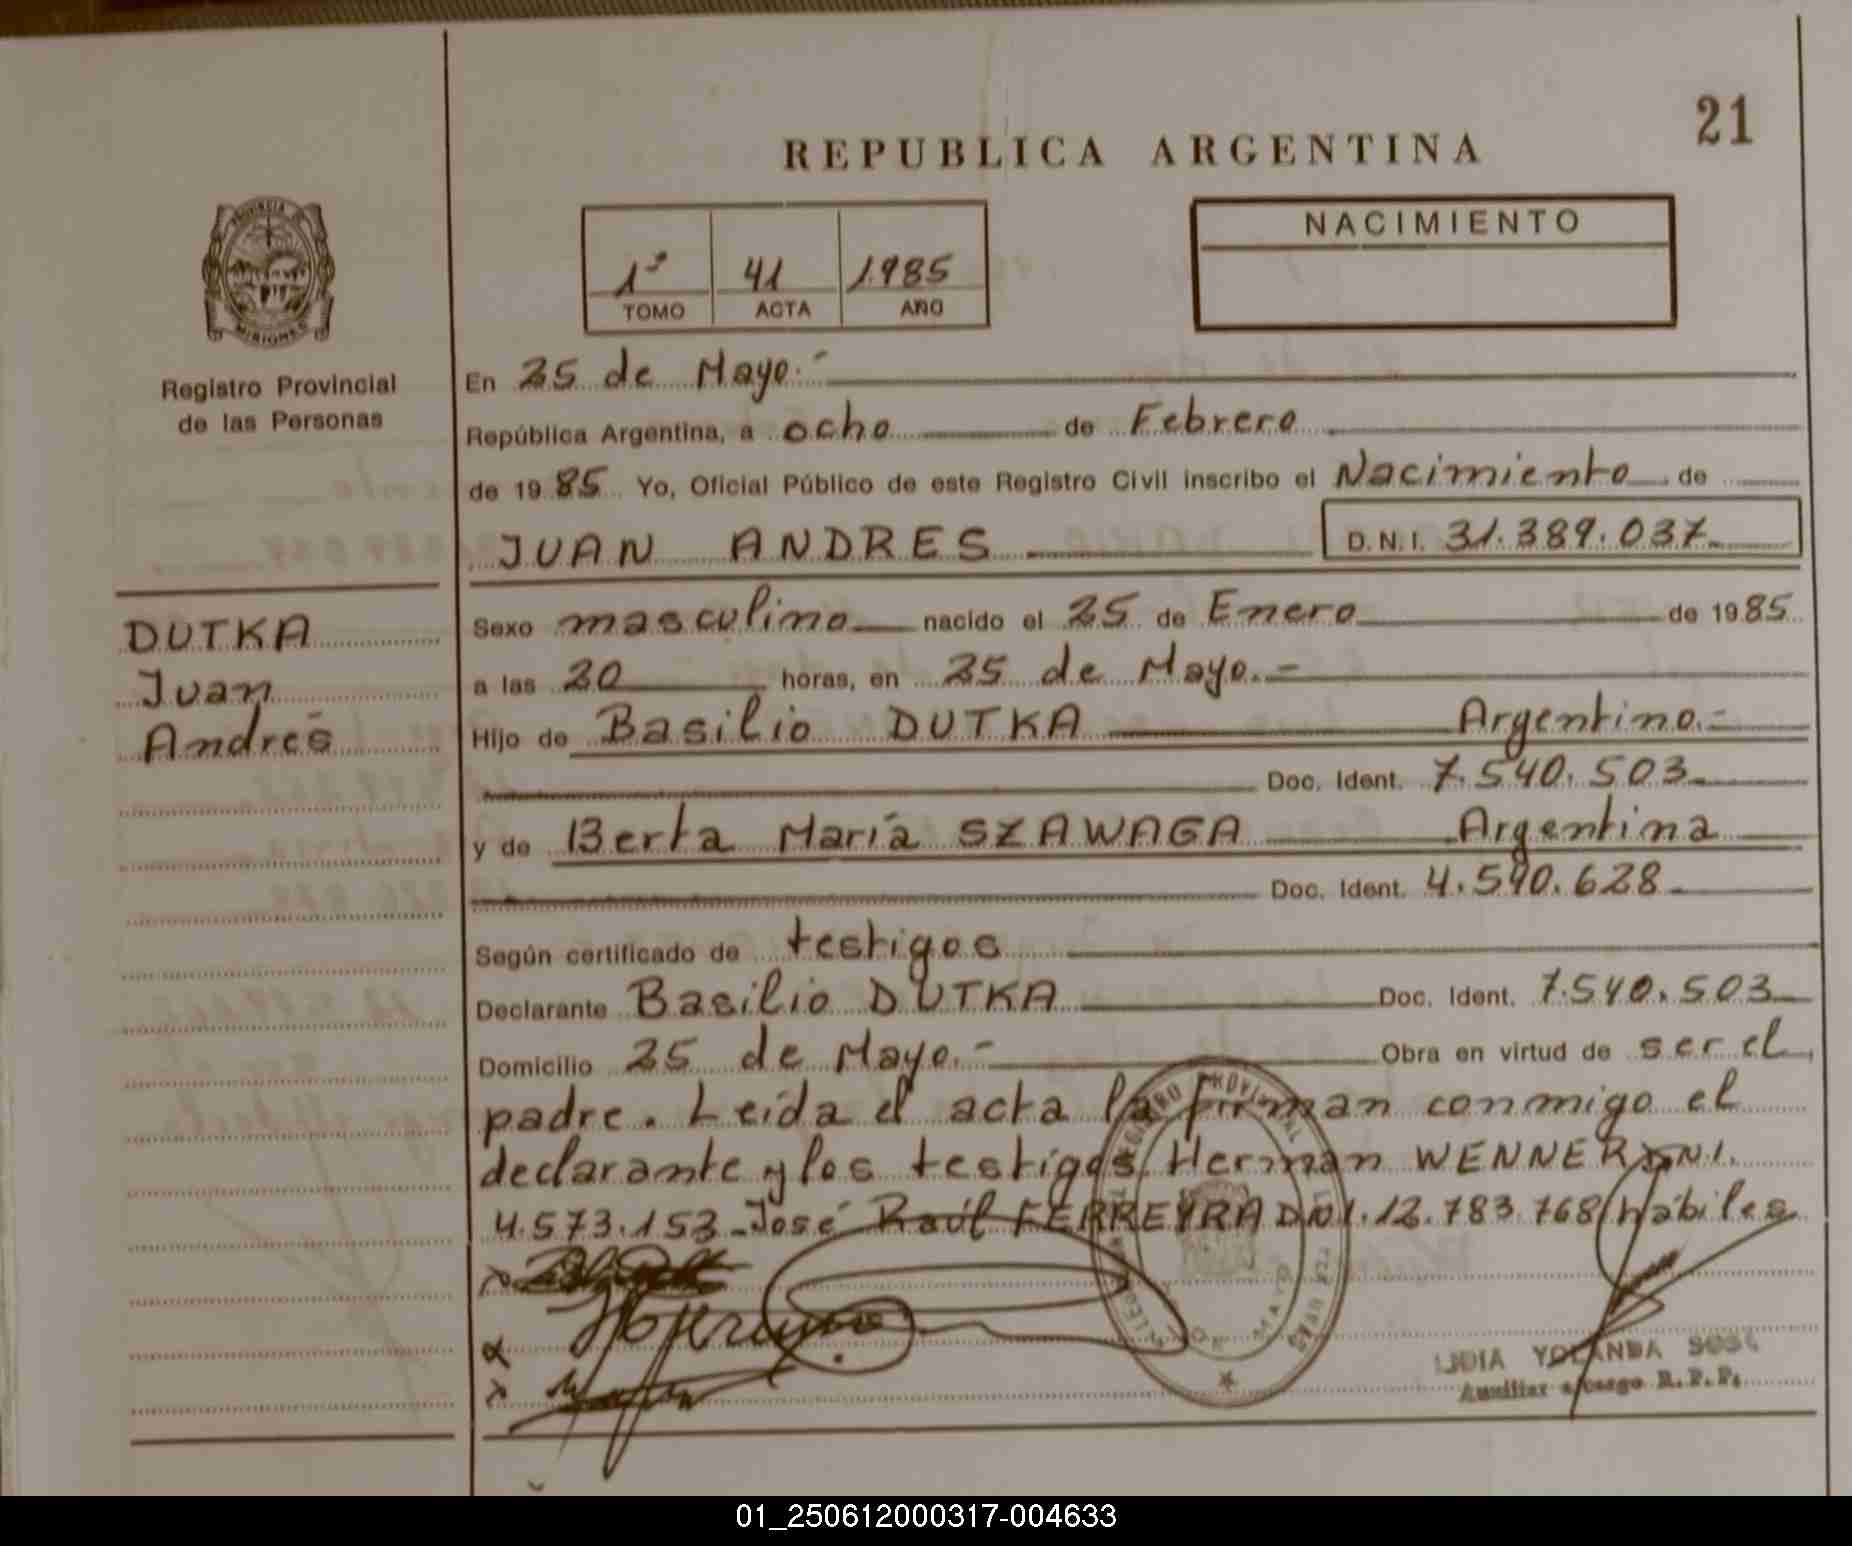 21
REPUBLICA ARGENTINA
PROVINCIA DE
MISIONES
Registro Provincial
de las Personas
1º 41 1985
TOMO ACTA AÑO
NACIMIENTO
En 25 de Mayo.-
República Argentina, a ocho de Febrero
de 1985 Yo, Oficial Público de este Registro Civil inscribo el Nacimiento de
JUAN ANDRES D.N.I. 31.389.037
DUTKA
Juan
Andrés
Sexo masculino nacido el 25 de Enero de 1985
a las 20 horas, en 25 de Mayo.-
Hijo de Basilio DUTKA Argentino.-
Doc. Ident. 7.540.503
y de Berta María SZAWAGA Argentina
Doc. Ident. 4.590.628
Según certificado de testigos
Declarante Basilio DUTKA Doc. Ident. 7.540.503
Domicilio 25 de Mayo.- Obra en virtud de ser el
padre. Leída el acta la firman conmigo el
declarante y los testigos Herman WENNER DNI.
4.573.153-José Raúl FERREYRA DNI.12.783.768 hábiles
REGISTRO PROVINCIAL
DE MAYO
LIDIA YOLANDA
Auxiliar a/cargo R.P.P.
01_250612000317-004633